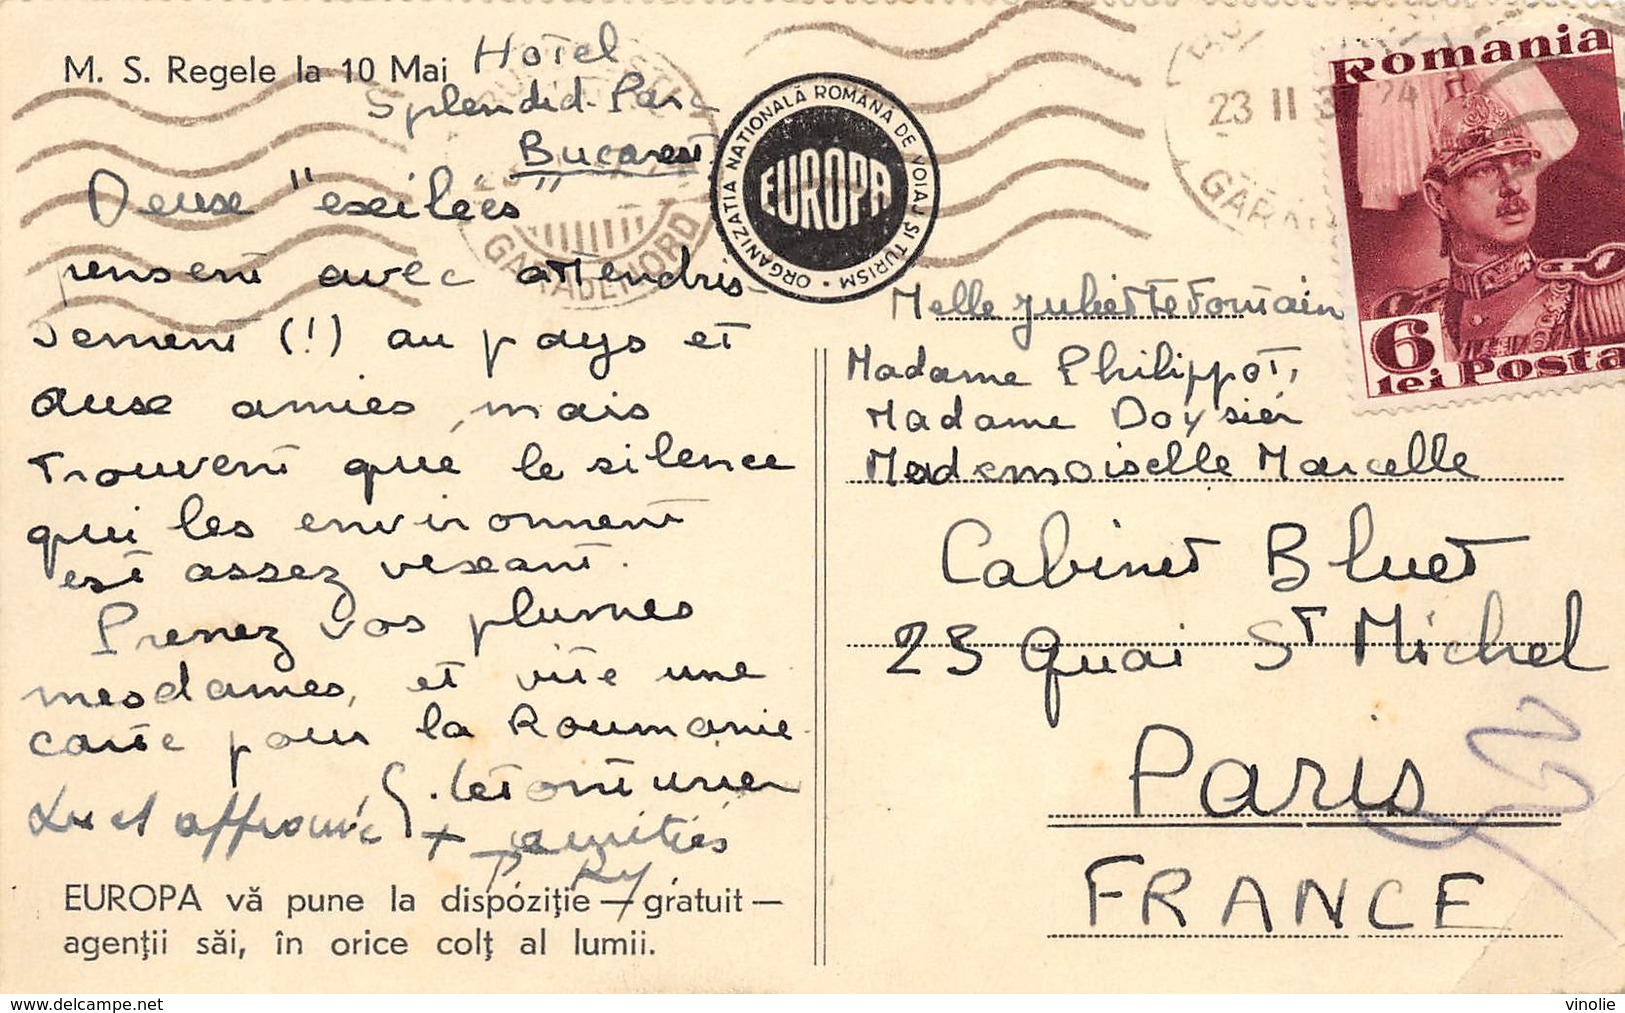 M. S. Regele la 10 Mai
Hotel
Splendid-Parc
Bucarest
Deux "exilées"
pensent avec attendris-
sement (!) au pays et
aux amies, mais
trouvent que le silence
qui les environnent
est assez vexant.
Prenez vos plumes
mesdames, et vite une
carte pour la Roumanie.
Lu et approuvé
+ amitiés
EUROPA vă pune la dispoziție — gratuit —
agenții săi, în orice colț al lumii.
ORGANIZAȚIA NAȚIONALĂ ROMÂNĂ DE VOIAJ ȘI TURISM
EUROPA
GARA DE NORD
23 II 3
Romania
6
lei Posta
Melle Juliette Fontain
Madame Philippot,
Madame Doysié
Mademoiselle Marcelle
Cabinet Bluet
23 Quai St Michel
Paris
FRANCE
www.delcampe.net
vinolie